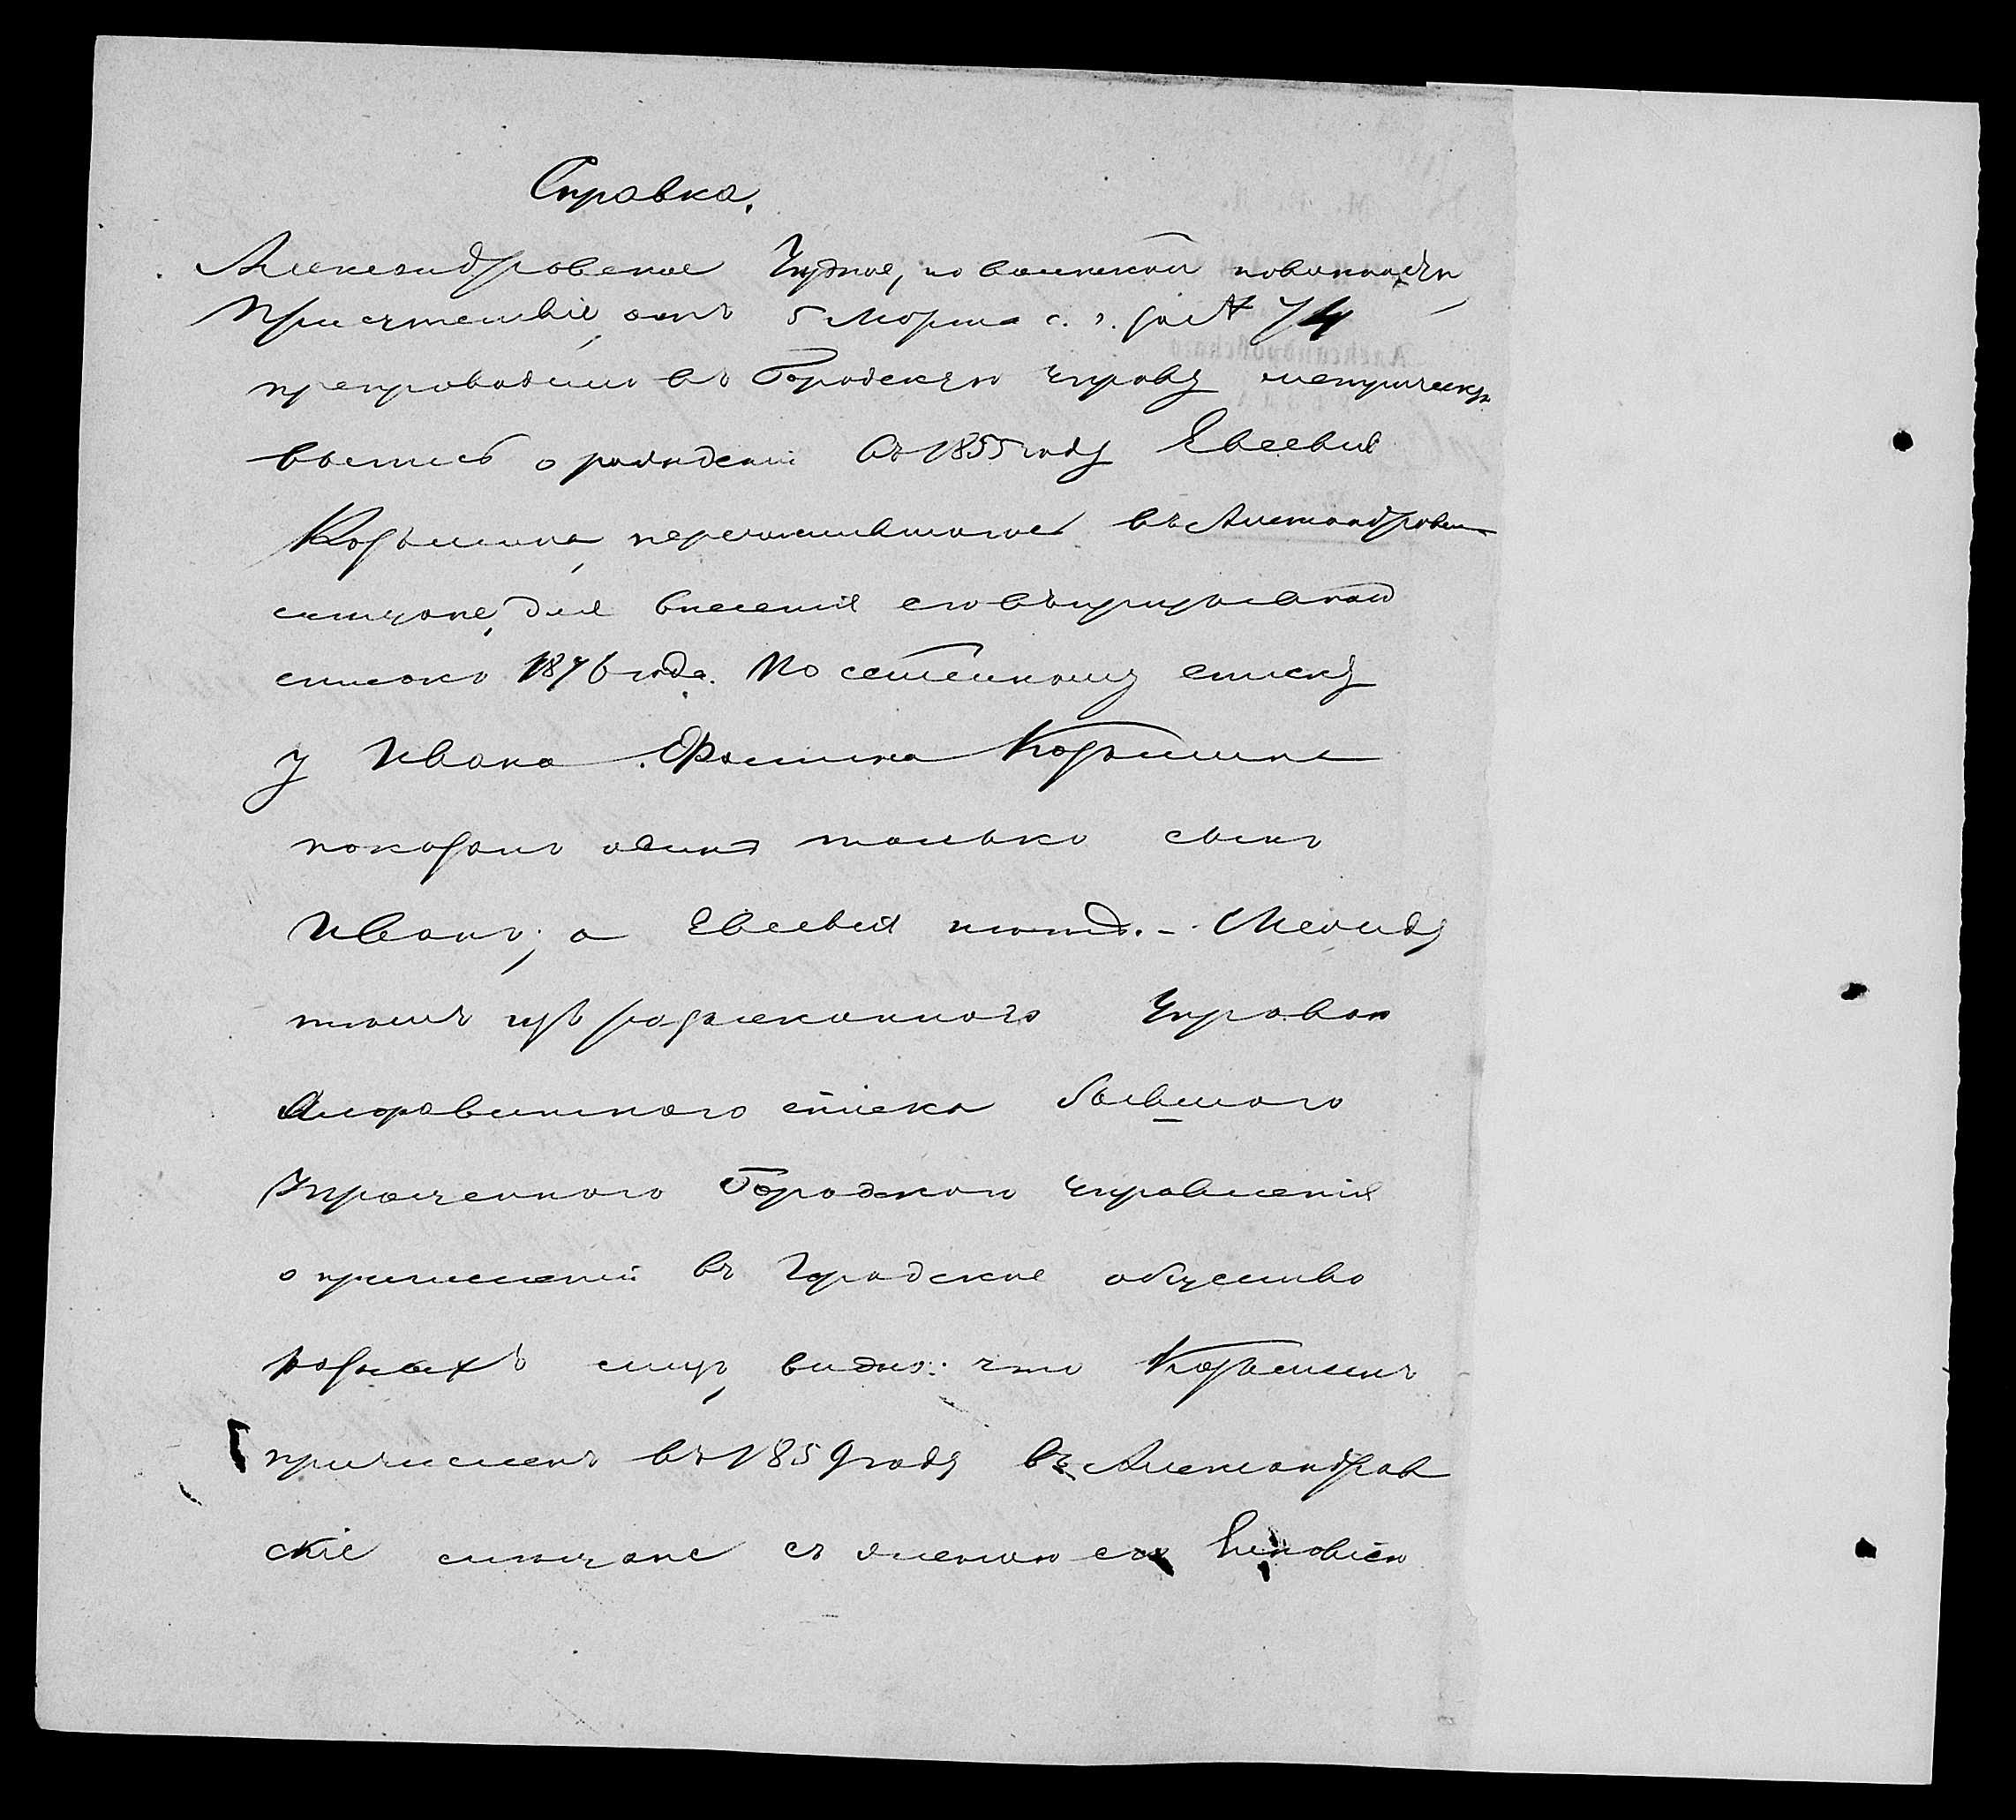 Справка.
Александровское Уѣздное, по воинской повинности
Присутствіе, отъ 5 Марта с. г. за № 74
препроводило въ Городскую Управу метрическую
выпись о рожденіи въ 1855 году Евсевія
Козьмина, перечислившагося въ Александровск
мѣщане, для внесенія его въ призывной
списокъ 1876 года. По семейному списку
у Ивана Козьмина
показанъ одинъ только сынъ
Иванъ; а Евсевія нѣтъ. –
тѣмъ изъ разысканнаго Управою
алфавитнаго списка бывшаго
Упрощеннаго Городскаго управленія
о причисленіи въ Городское общество
разныхъ лицъ, видно: что Козьминъ
причисленъ въ 1859 году въ Александров
скіе мѣщане съ женою его